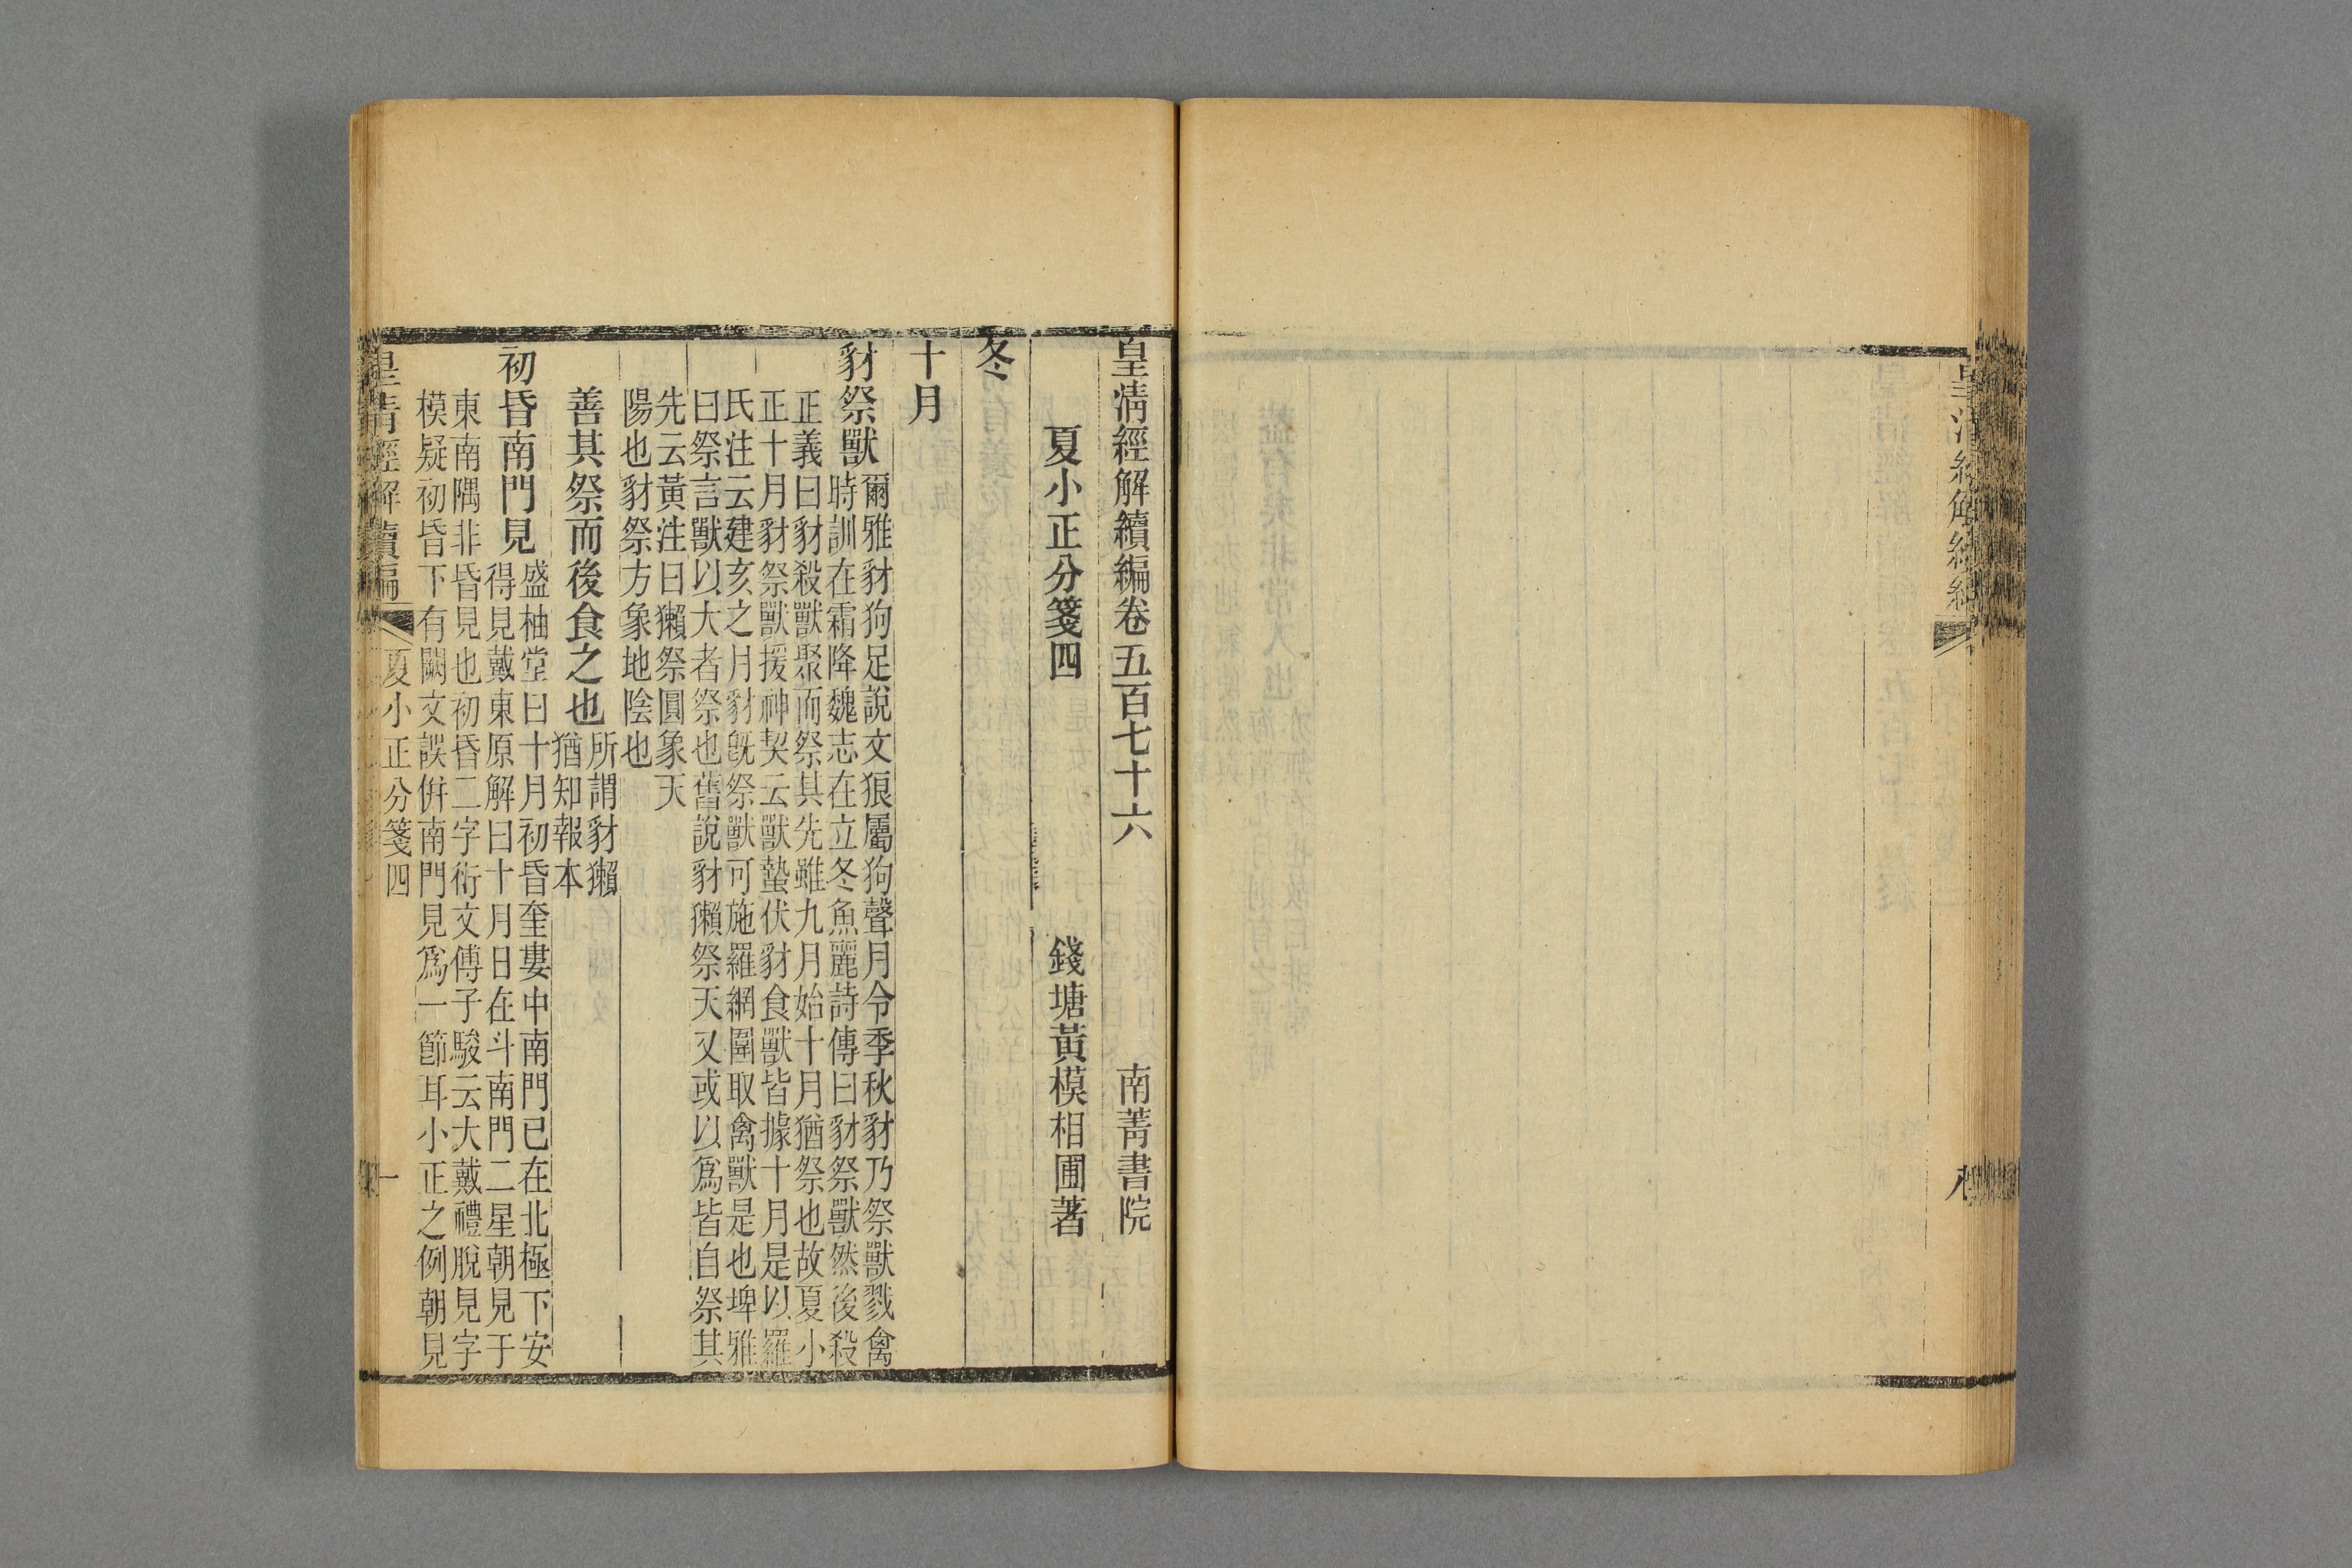 皇清經解續編卷五百七十六　南菁書院
夏小正分箋四　錢塘黃模相圃著
冬
十月
豺祭獸
爾雅豺狗足說文狼屬狗聲月令季秋豺乃祭獸戮禽
時訓在霜降魏志在立冬魚麗詩傳曰豺祭獸然後殺
正義曰豺殺獸聚而祭其先雖九月始十月猶祭也故夏小
正十月豺祭獸援神契云獸蟄伏豺食獸皆據十月是以羅
氏注云建亥之月豺旣祭獸可施羅網圍取禽獸是也埤雅
曰祭言獸以大者祭也舊說豺獺祭天又或以爲皆自祭其
先云黃注曰獺祭圓象天
陽也豺祭方象地陰也
善其祭而後食之也
所謂豺獺
猶知報本
初昏南門見
盛柚堂曰十月初昏奎婁中南門已在北極下安
得見戴東原解曰十月日在斗南門二星朝見于
東南隅非昏見也初昏二字衍文傅子駿云大戴禮脫見字
模疑初昏下有闕文誤併南門見爲一節耳小正之例朝見
皇清經解續編　夏小正分箋四　一